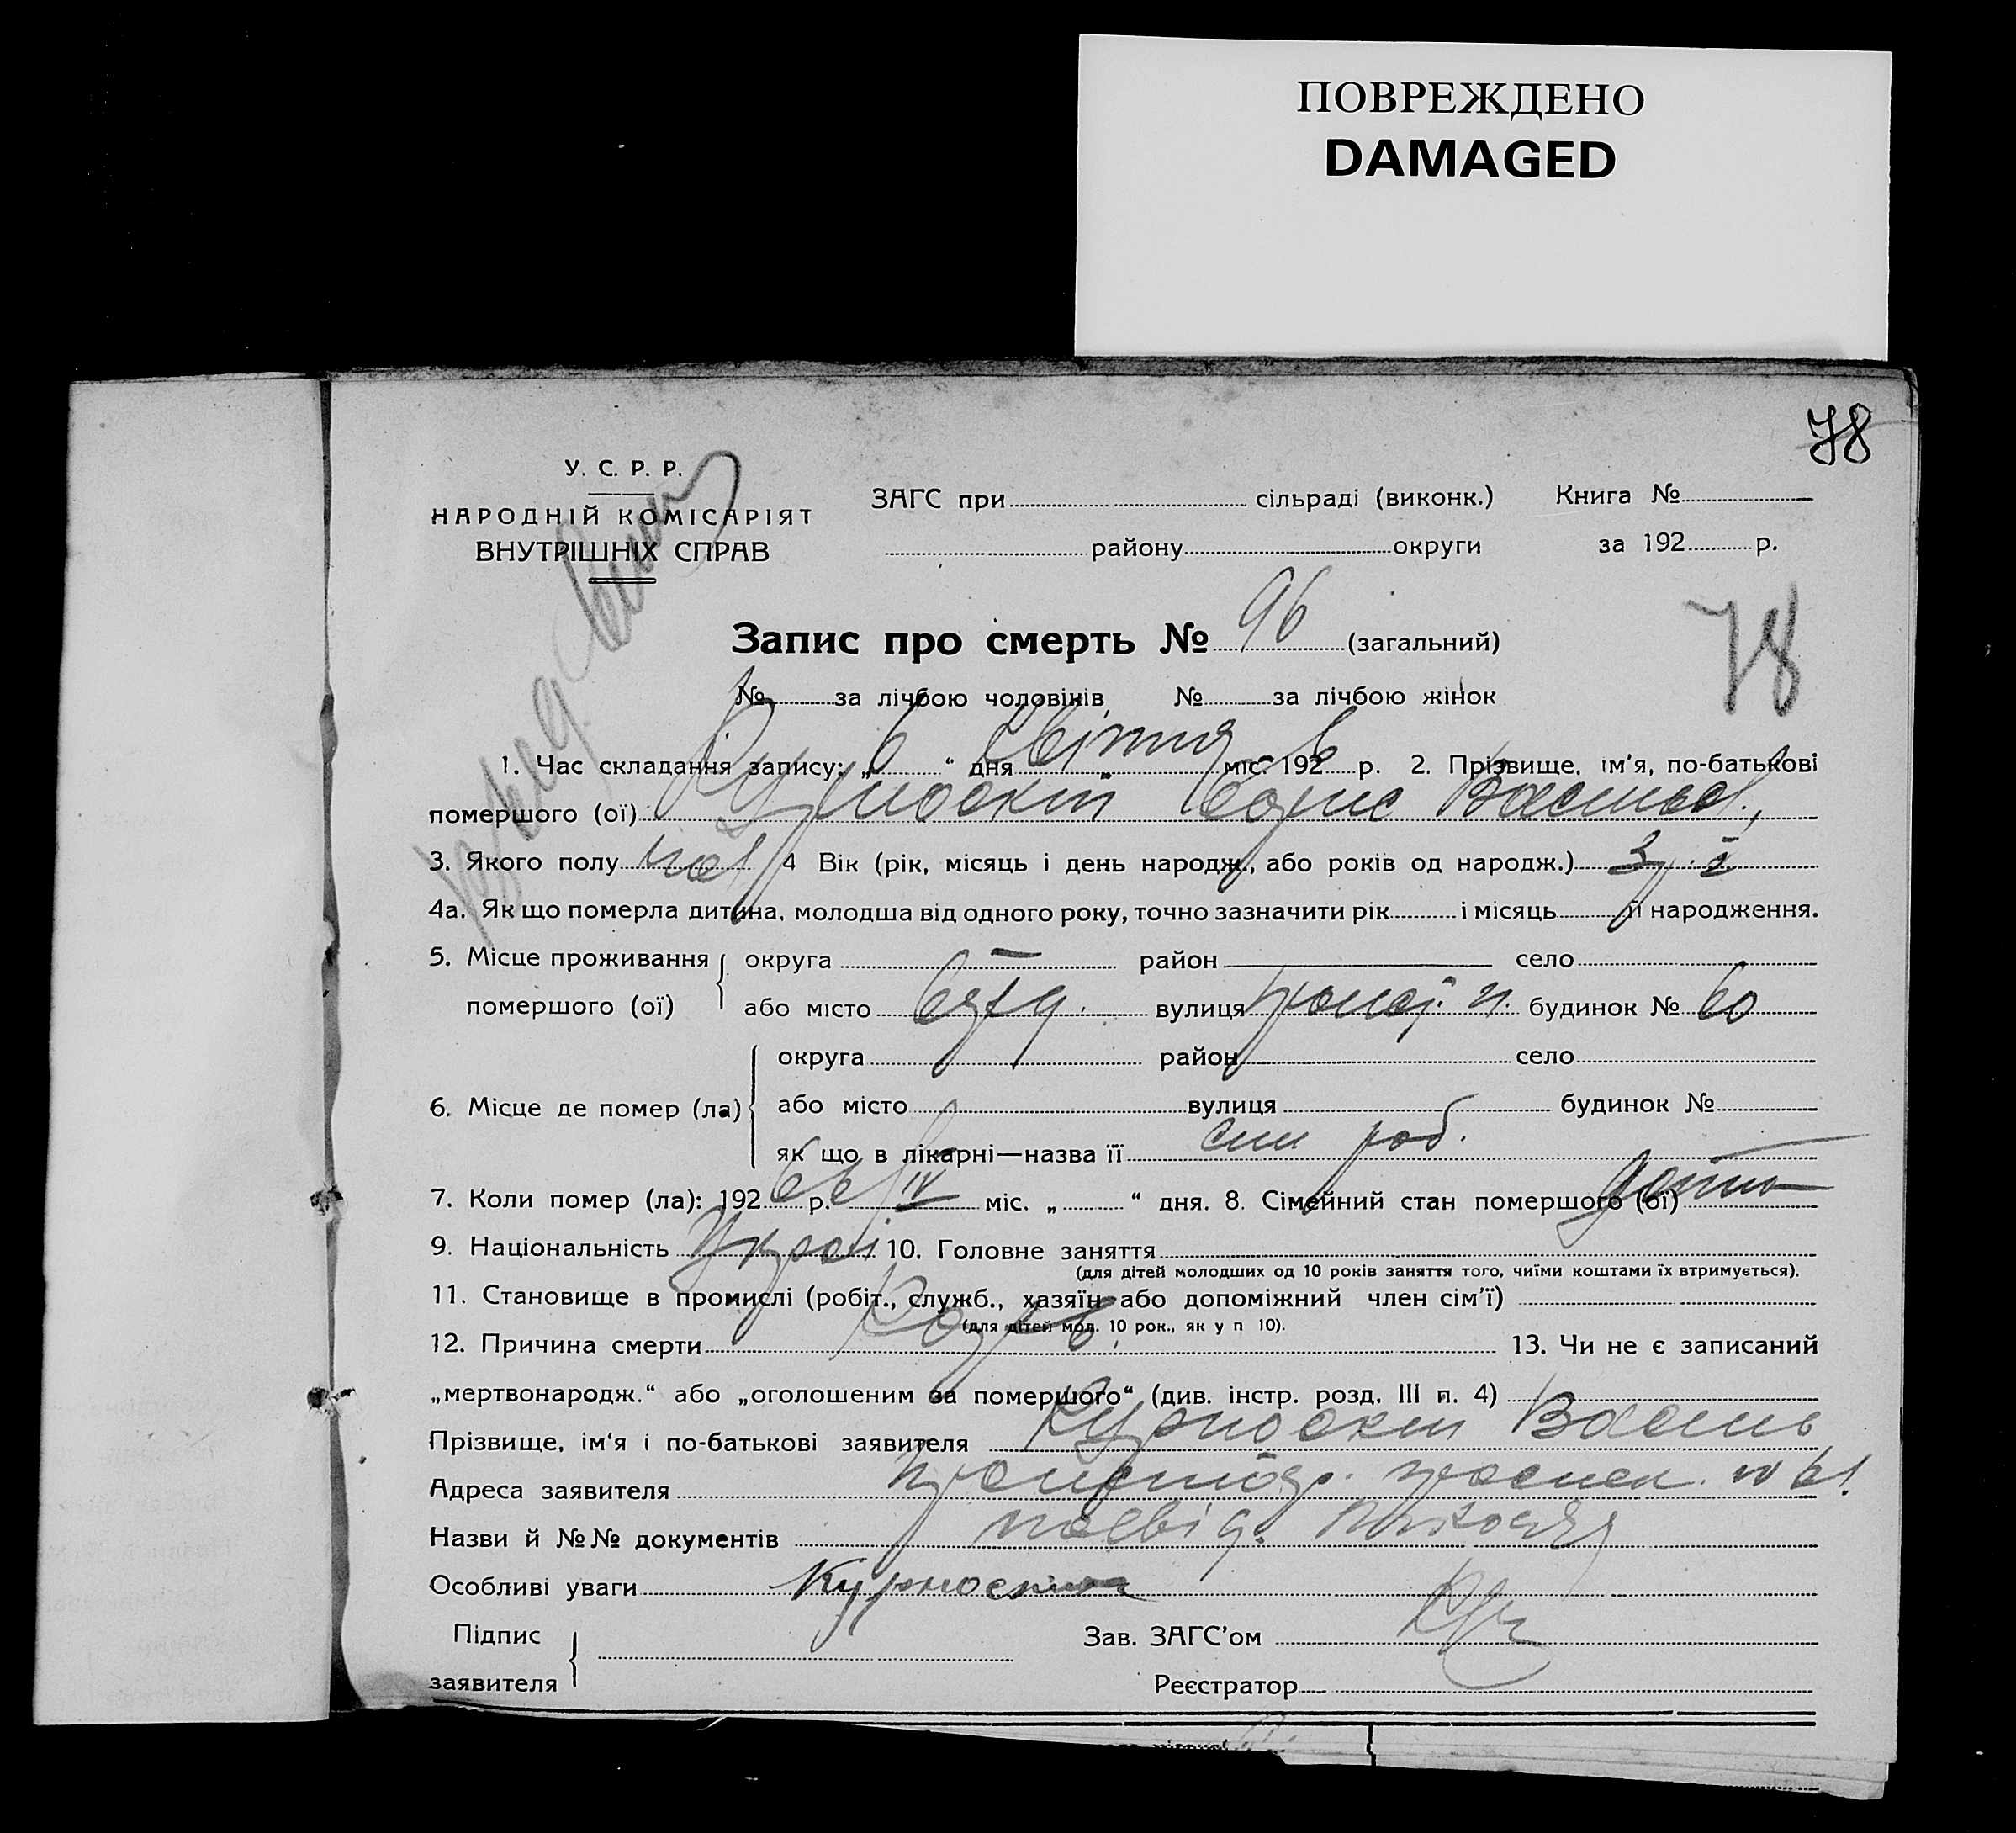 ПОВРЕЖДЕНО
DAMAGED
78
У. С. Р. Р.
НАРОДНІЙ КОМІСАРІЯТ
ВНУТРІШНІХ СПРАВ
ЗАГС при сільраді (виконк.) Книга №
району округи за 192 р.
78
Запис про смерть № 96 (загальний)
№ за лічбою чоловіків № за лічбою жінок
1. Час складання запису: „ 6 “ дня Квітня міс. 192 р. 2. Прізвище, ім'я, по-батькові
помершого (ої) Курноскін Борис Васильов.
3. Якого полу чол 4 Вік (рік, місяць і день народж., або років од народж.) 3 р.
4а. Як що померла дитина, молодша від одного року, точно зазначити рік і місяць її народження.
5. Місце проживання помершого (ої) округа район село
або місто вулиця будинок № 60
6. Місце де помер (ла) округа район село
або місто вулиця будинок №
як що в лікарні—назва її син роб.
7. Коли помер (ла): 192 р. IV міс. „ “ дня. 8. Сімейний стан помершого (ої)
9. Національність Украї 10. Головне заняття
(для дітей молодших од 10 років заняття того, чиїми коштами їх втримується).
11. Становище в промислі (робіт., служб., хазяїн або допоміжний член сім'ї)
(для дітей мол. 10 рок., як у п 10).
12. Причина смерти 13. Чи не є записаний
„мертвонародж.“ або „оголошеним за помершого“ (див. інстр. розд. III п. 4)
Прізвище, ім'я і по-батькові заявителя Курноскін Василь
Адреса заявителя № 61
Назви й №№ документів посвід.
Особливі уваги Курноскін
Підпис заявителя Зав. ЗАГС'ом
Реєстратор